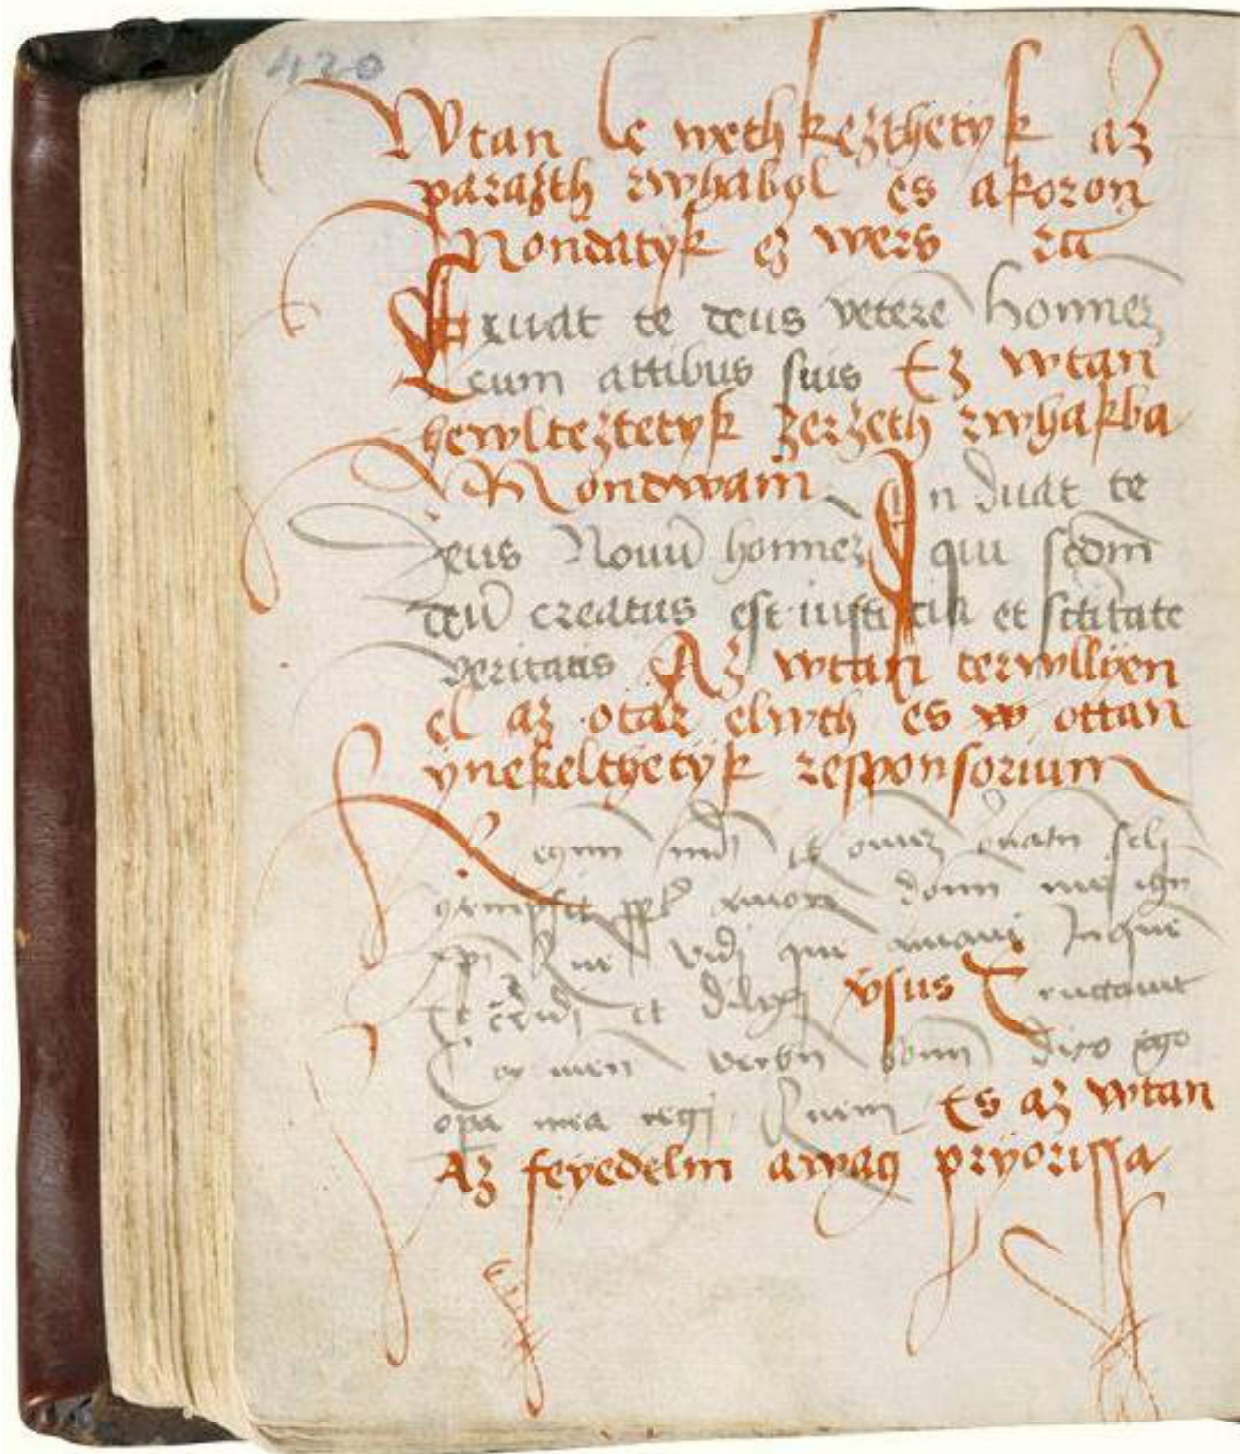 420
Wtan le weth kezthetyk az
parazth rwhabol es akoron
Mondatyk ez wers
Exuat te deus vetere hominez
cum attibus suis Ez wtan
hewlteztetyk zerzeth rwhakba
Mondwam Induat te
deus Nouu hominez qui scdm
deu creatus est iusticia et sctitate
veritatis Az wtan terwllyen
el az otar elwth es w ottan
ynekelthetyk responsorium
Regnu mdi et omnez ornatu scli
9tempsit ppt amore domi mei ihu
xpi Que vidi que amaui Inque
Et credidi et dilexi vsus Eructauit
Cor meu verbu bonu dico ego
opa mea regi Quem Es az wtan
Az feyedelm awag pryorissa